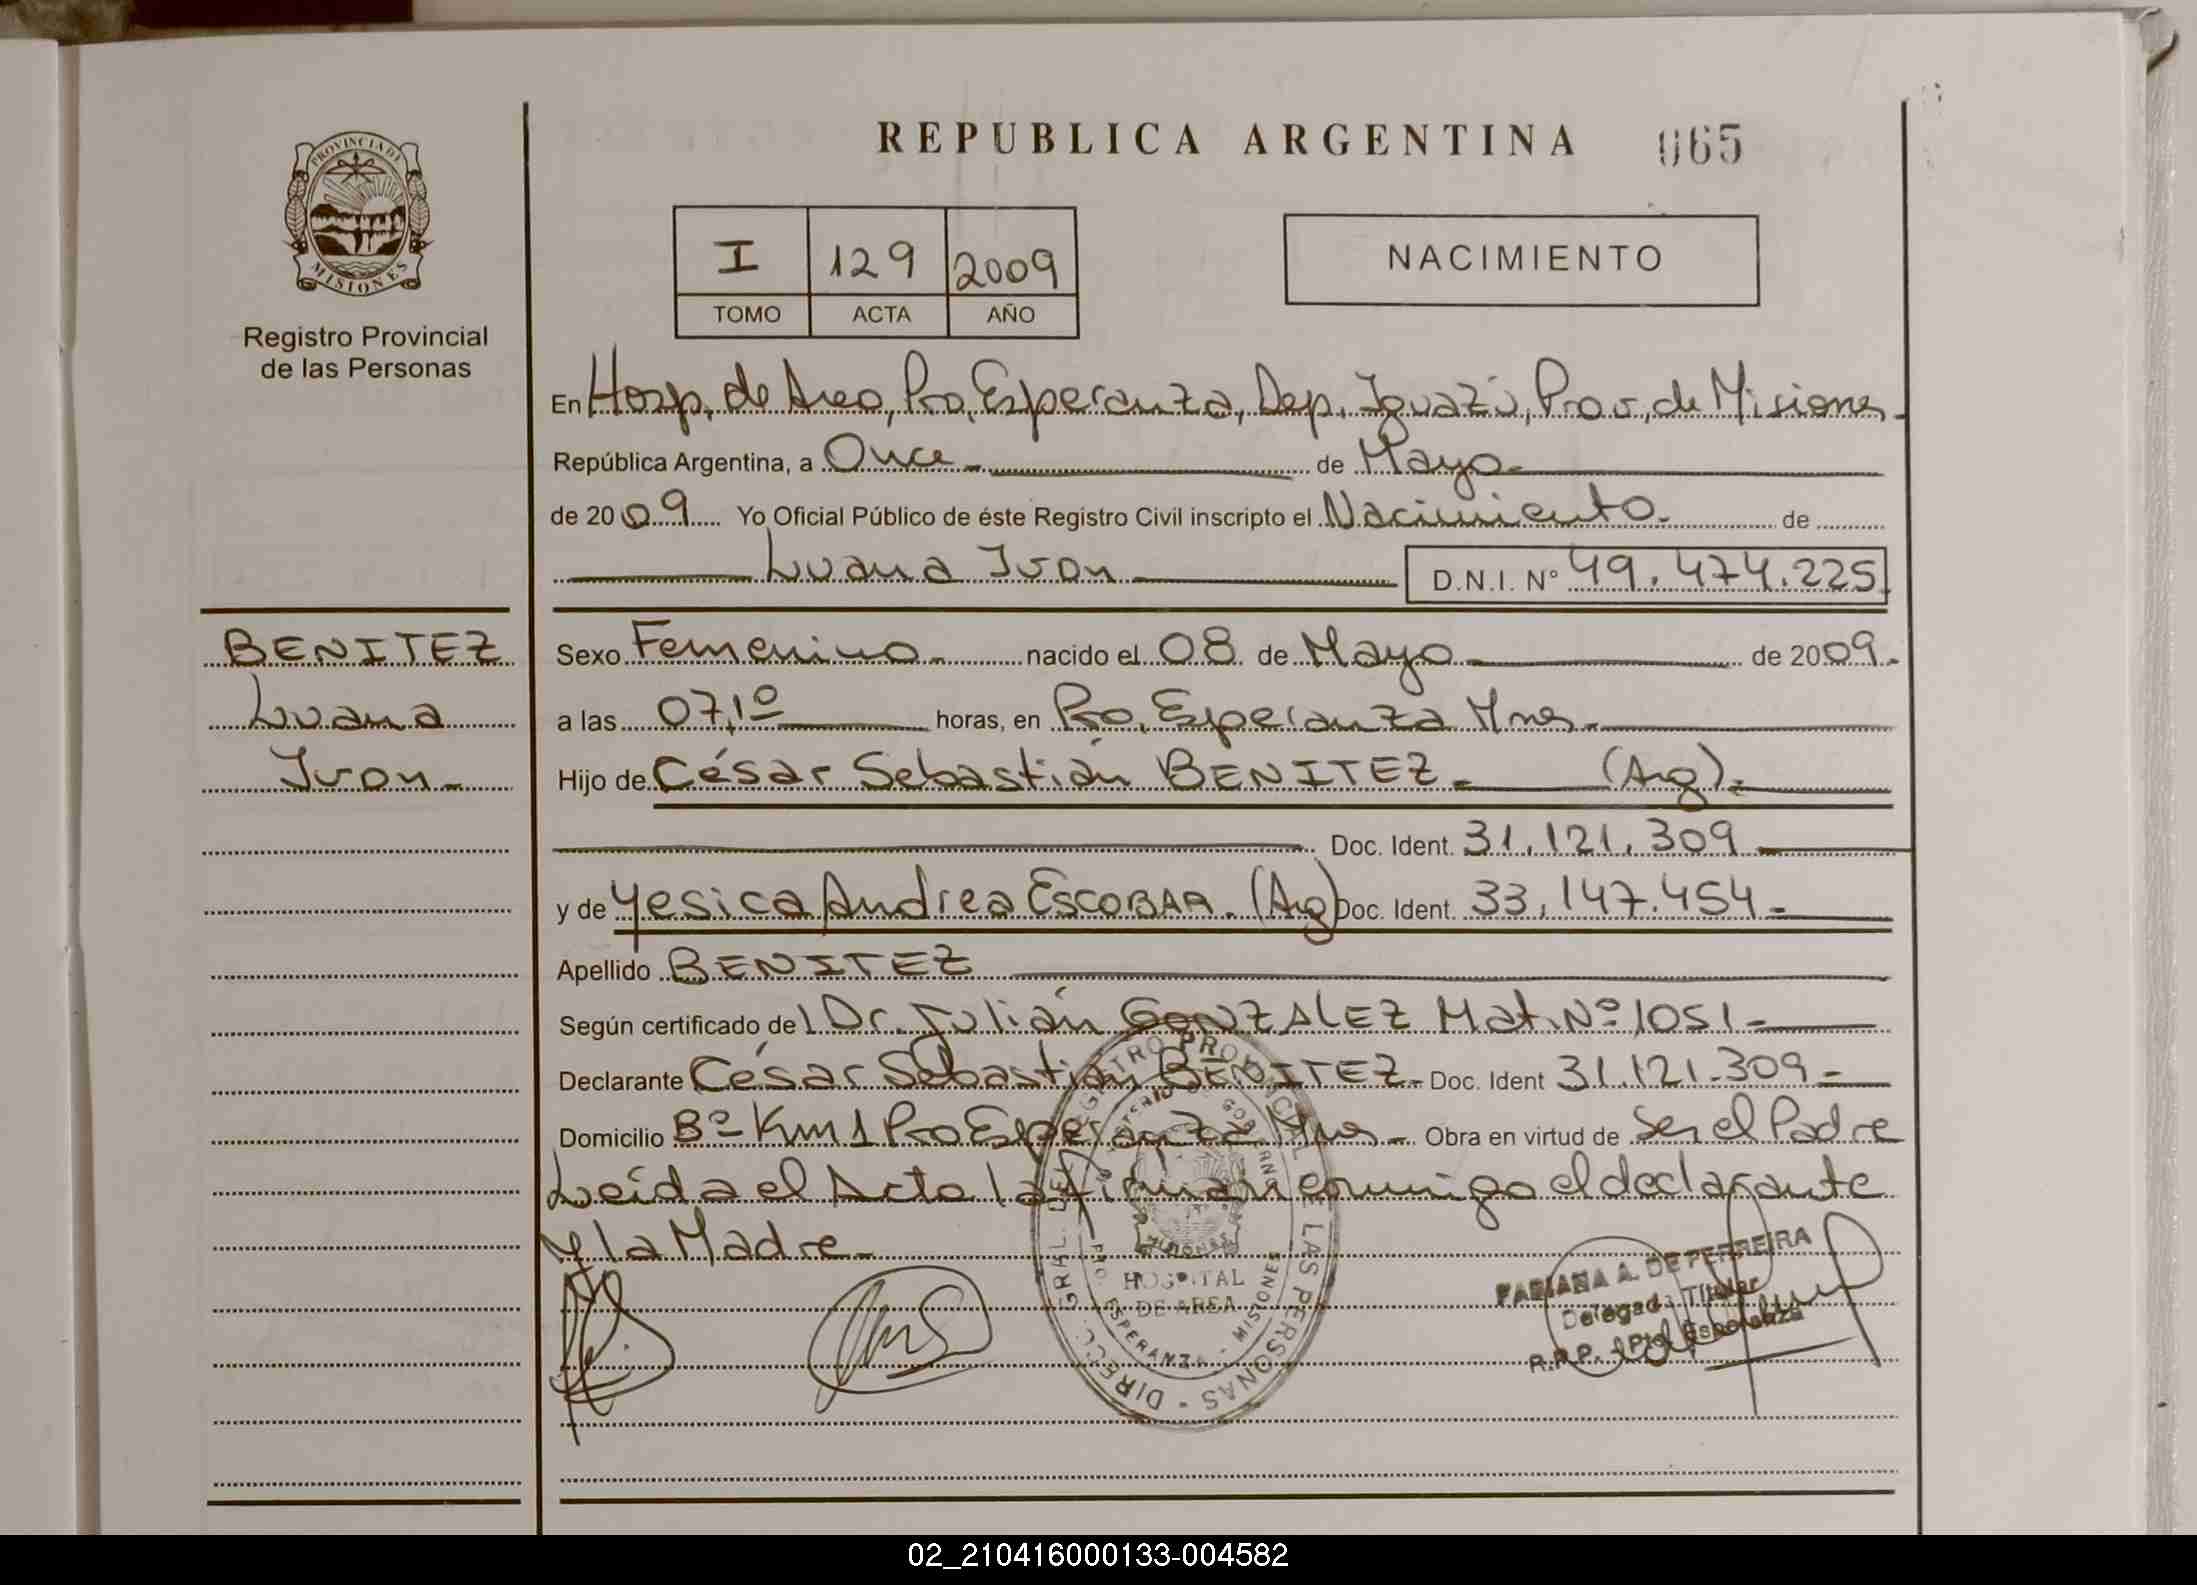 REPUBLICA ARGENTINA 065
PROVINCIA DE MISIONES
Registro Provincial
de las Personas
I 129 2009
TOMO ACTA AÑO
NACIMIENTO
En Hosp. de Area, Pto. Esperanza, Dep. Iguazú, Prov. de Misiones
República Argentina, a Once de Mayo
de 2009 Yo Oficial Público de éste Registro Civil inscripto el Nacimiento de
Luana Ivon D.N.I. Nº 49.474.225
BENITEZ
Luana
Ivon
Sexo Femenino nacido el 08 de Mayo de 2009
a las 07,10 horas, en Pto. Esperanza Mnes.
Hijo de César Sebastián BENITEZ (Arg)
Doc. Ident. 31.121.309
y de Yesica Andrea ESCOBAR. (Arg) Doc. Ident. 33.147.454
Apellido BENITEZ
Según certificado del Dr. Julián GONZALEZ Mat. Nº 1051
Declarante César Sebastián BENITEZ Doc. Ident 31.121.309
Domicilio Bº Km 1 Pto Esperanza Mnes Obra en virtud de Ser el Padre
Leida el Acta la firman conmigo el declarante
y la Madre
DIRECC. GRAL. DEL REGISTRO PROVINCIAL DE LAS PERSONAS
MISIONES
HOSPITAL
DE AREA
ESPERANZA - MISIONES
FABIANA A. DE PERREIRA
Delegada Titular
R.P.P. - Pto. Esperanza
02_210416000133-004582